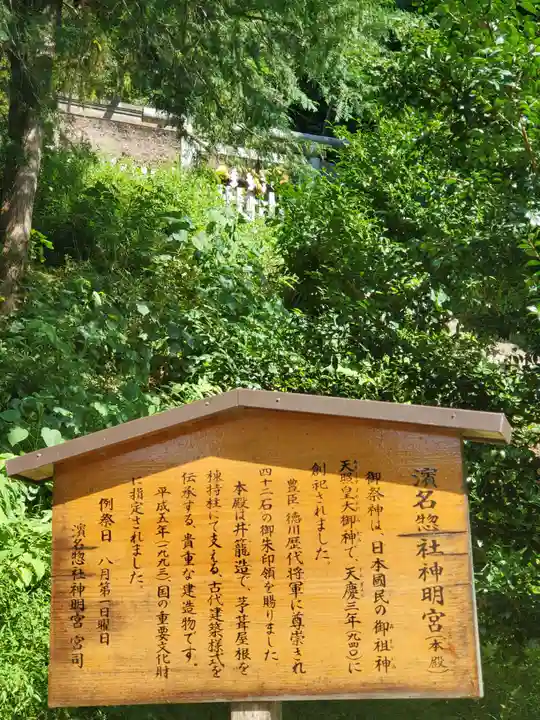 濱名惣社神明宮（本殿）
御祭神は、日本國民の御祖神
天照皇大御神で、天慶三年（九四〇）に
創祀されました。
豊臣、徳川歴代将軍に尊崇され
四十二石の御朱印領を賜りました
本殿は井籠造で、茅葺屋根を
棟持柱にて支える、古代建築様式を
伝承する、貴重な建造物です。
平成五年（一九九三）、国の重要文化財
に指定されました。
例祭日　八月第一日曜日
濱名惣社神明宮　宮司